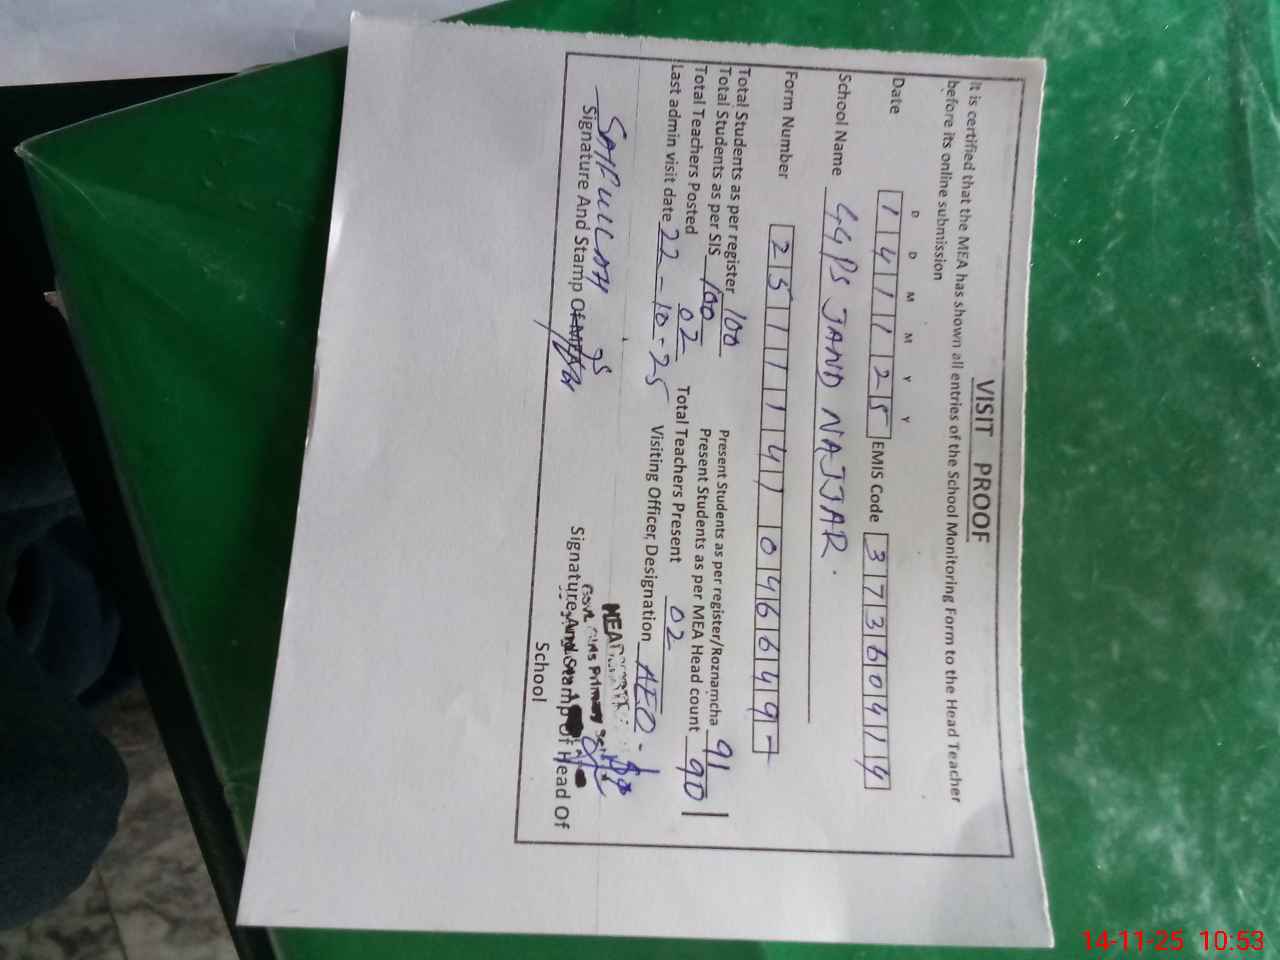 VISIT PROOF
It is certified that the MEA has shown all entries of the School Monitoring Form to the Head Teacher
before its online submission
D D M M Y Y
Date 1 4 1 1 2 5 EMIS Code 3 7 3 6 0 4 1 4
School Name GGPS JAND NAJJAR.
Form Number 2 5 1 1 1 1 4 1 0 4 6 6 4 9 -
Total Students as per register 100 Present Students as per register/Roznamcha 91
Total Students as per SIS 100 Present Students as per MEA Head count 90
Total Teachers Posted 02 Total Teachers Present 02
Last admin visit date 22-10-25 Visiting Officer, Designation AEO-
SAIFULLAH
Signature And Stamp Of MEA
HEAD
Govt. Girls Primary
Signature And Stamp Of Head Of
School
14-11-25 10:53